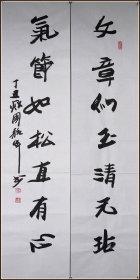 文章似玉清无玷
氣節如松直有心
丁丑